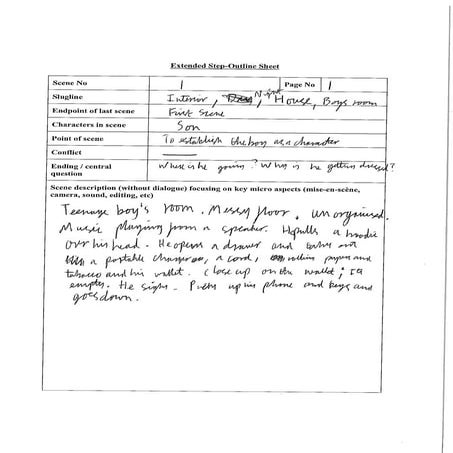 Extended Step-Outline Sheet
Scene No 1 Page No 1
Slugline Interior, Night, House, Boys room
Endpoint of last scene First scene
Characters in scene Son
Point of scene To establish the boy as a character
Conflict
Ending / central question Where is he going? Why is he getting dressed?
Scene description (without dialogue) focusing on key micro aspects (mise-en-scène,
camera, sound, editing, etc)
Teenage boy's room. Messy floor, unorganised.
Music playing from a speaker. He pulls a hoodie
over his head. He opens a drawer and takes out
a portable charger, a cord, rolling papers and
tobacco and his wallet. Close up on the wallet; its
empty. He sighs. Picks up his phone and keys and
goes down.